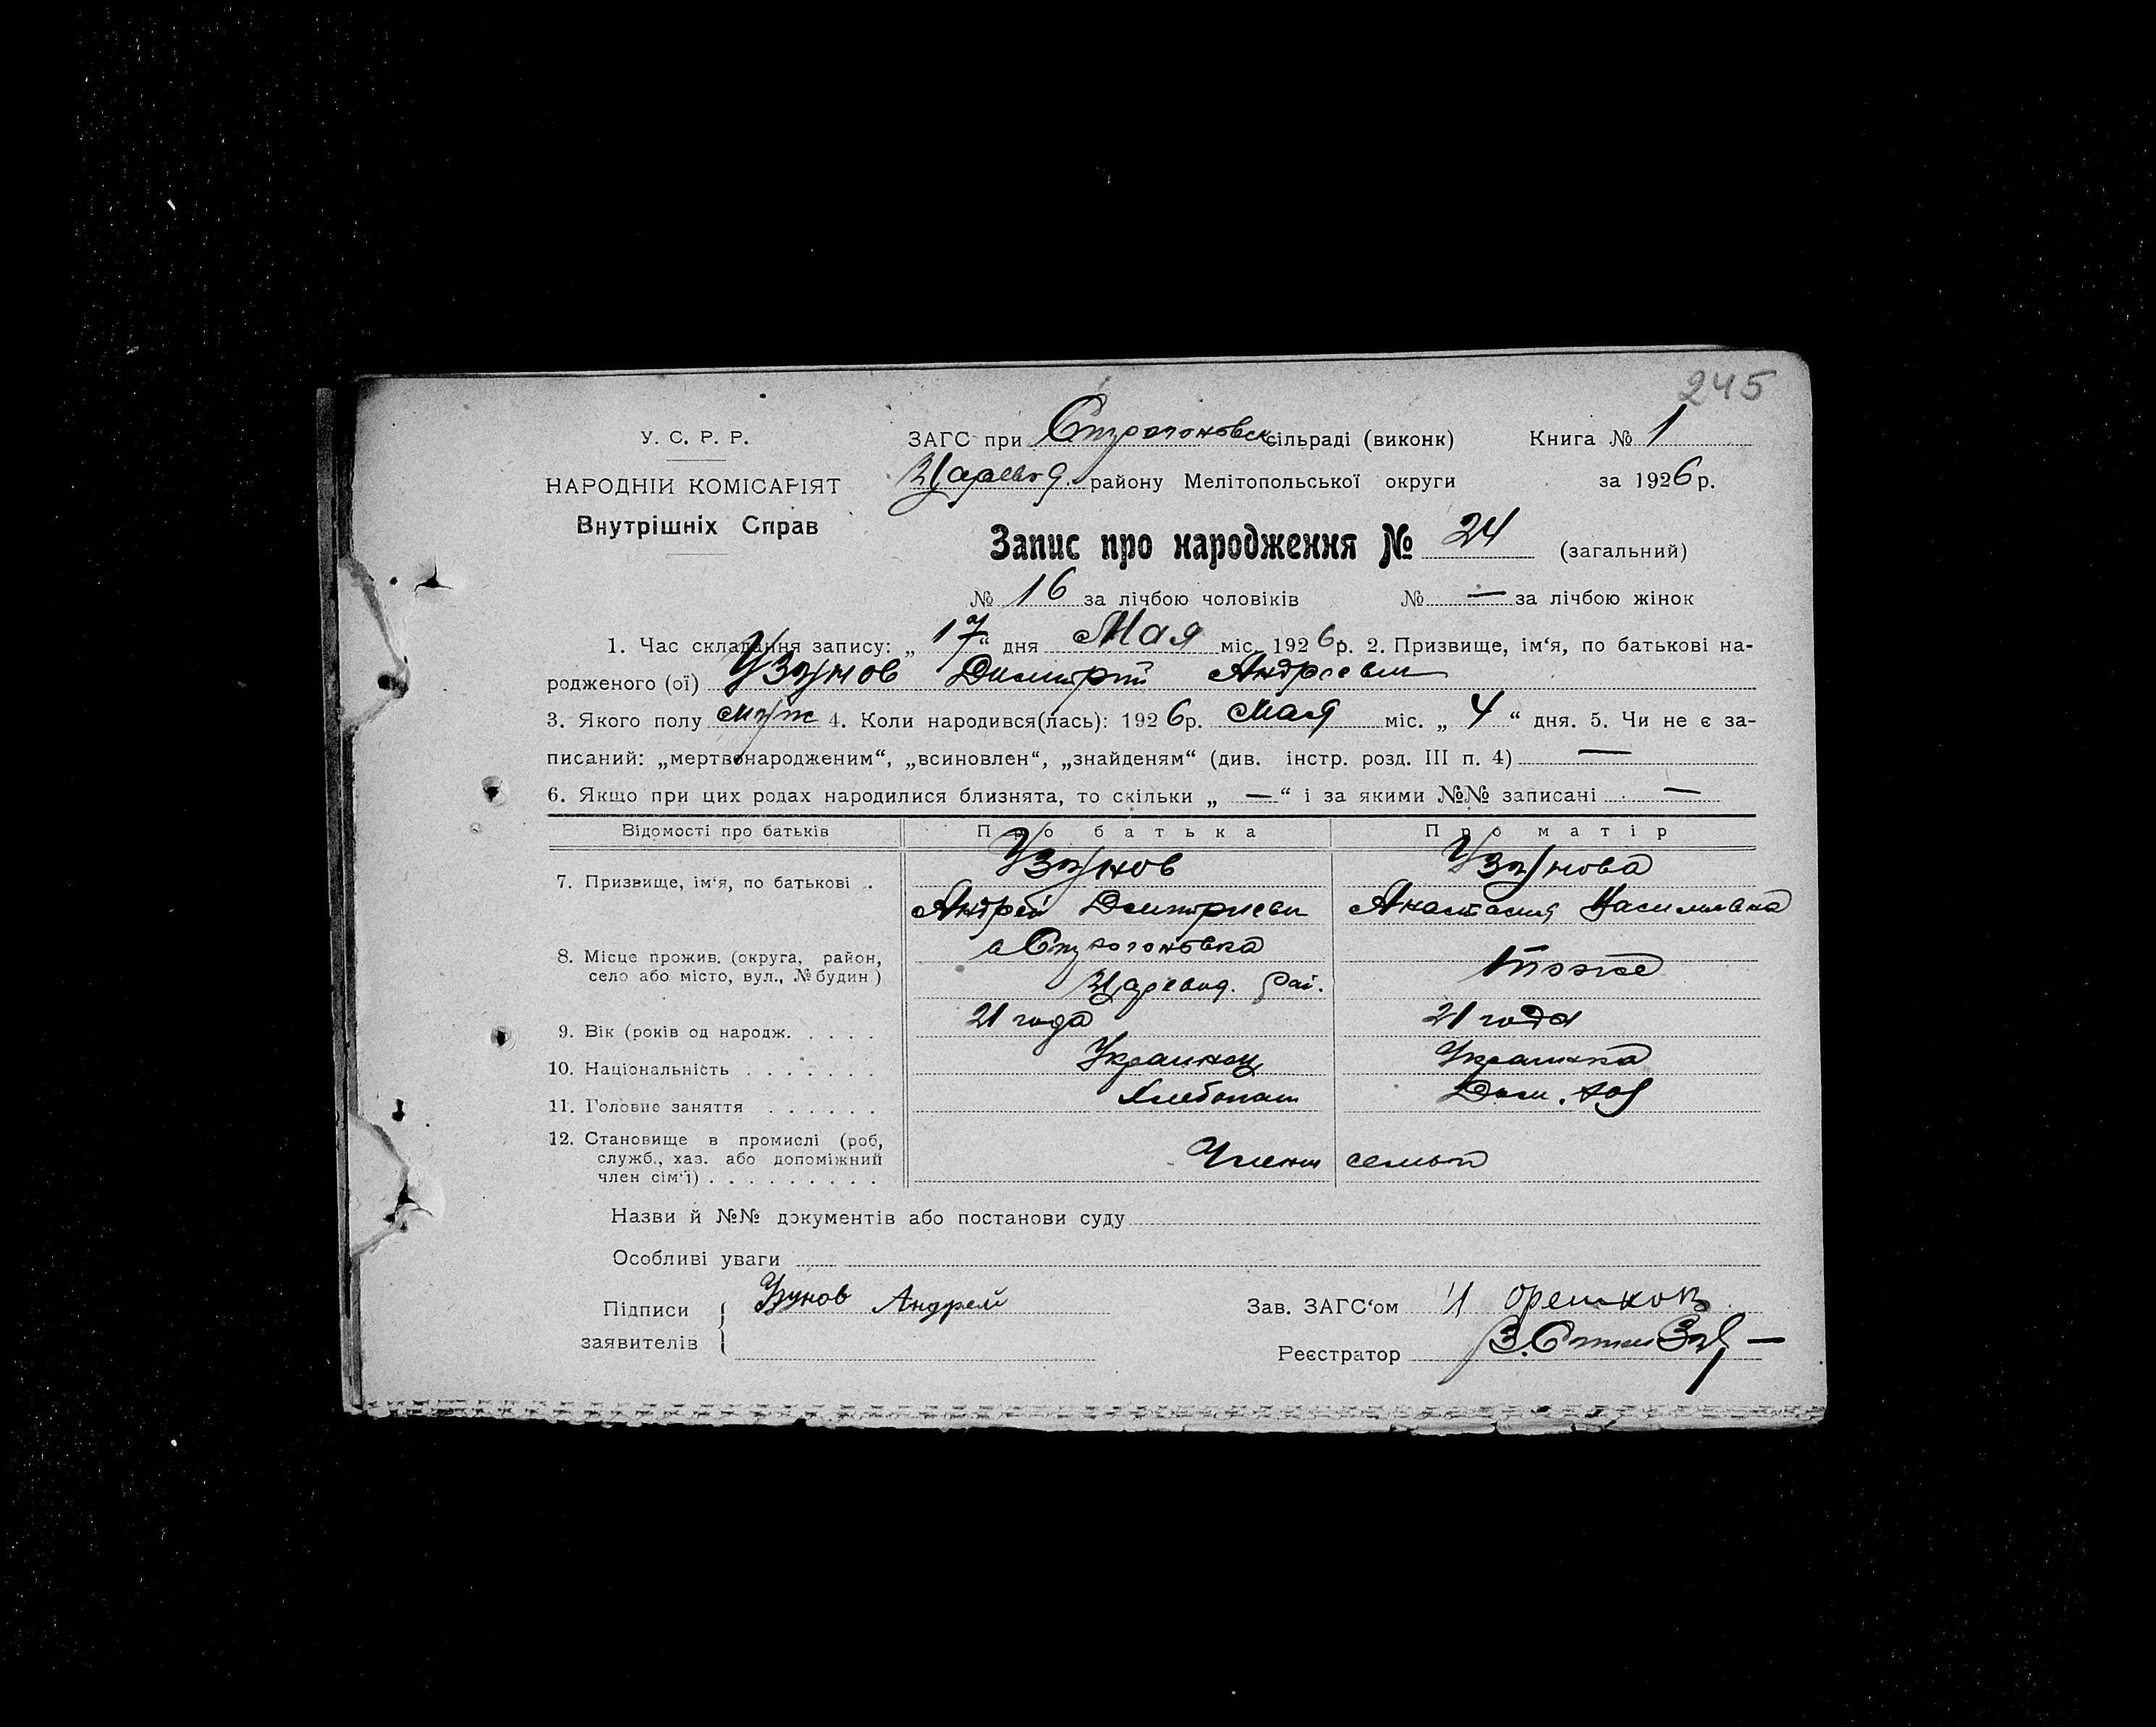 245
У. С. Р. Р.
НАРОДНІЙ КОМІСАРІЯТ
Внутрішніх Справ
ЗАГС при Строгоновск сільраді (виконк) Книга № 1
Царевод. району Мелітопольської округи за 1926 р.
Запис про народження № 24 (загальний)
№ 16 за лічбою чоловіків № — за лічбою жінок
1. Час складання запису: „ 17 “ дня Мая міс. 1926 р. 2. Призвище, ім‘я, по батькові на-
родженого (ої) Узунов Димитрий Андреевич
3. Якого полу муж 4. Коли народився(лась): 1926 р. Мая міс. „ 4 “ дня. 5. Чи не є за-
писаний: „мертвонародженим“, „всиновлен“, „знайденям“ (див. інстр. розд. III п. 4) —
6. Якщо при цих родах народилися близнята, то скільки „ — “ і за якими №№ записані —
Відомості про батьків Про батька Про матір
7. Призвище, ім‘я, по батькові . Узунов Узунова
Андрей Дмитриевич Анастасия Васильевна
8. Місце прожив. (округа, район,
село або місто, вул., № будин)
Строгоновка
Царевод. рай.
тоже
9. Вік (років од народж. . . . . 21 года 21 года
10. Національність . . . . . . . Украинец Украинка
11. Головне заняття . . . . . . Хлебопаш Дом. хоз
12. Становище в промислі (роб,
служб., хаз. або допоміжний
член сім‘ї) . . . . . . . . . Члены семьи
Назви й №№ документів або постанови суду
Особливі уваги
Підписи
заявителів
Узунов Андрей
Зав. ЗАГС‘ом И Орешков
Реєстратор